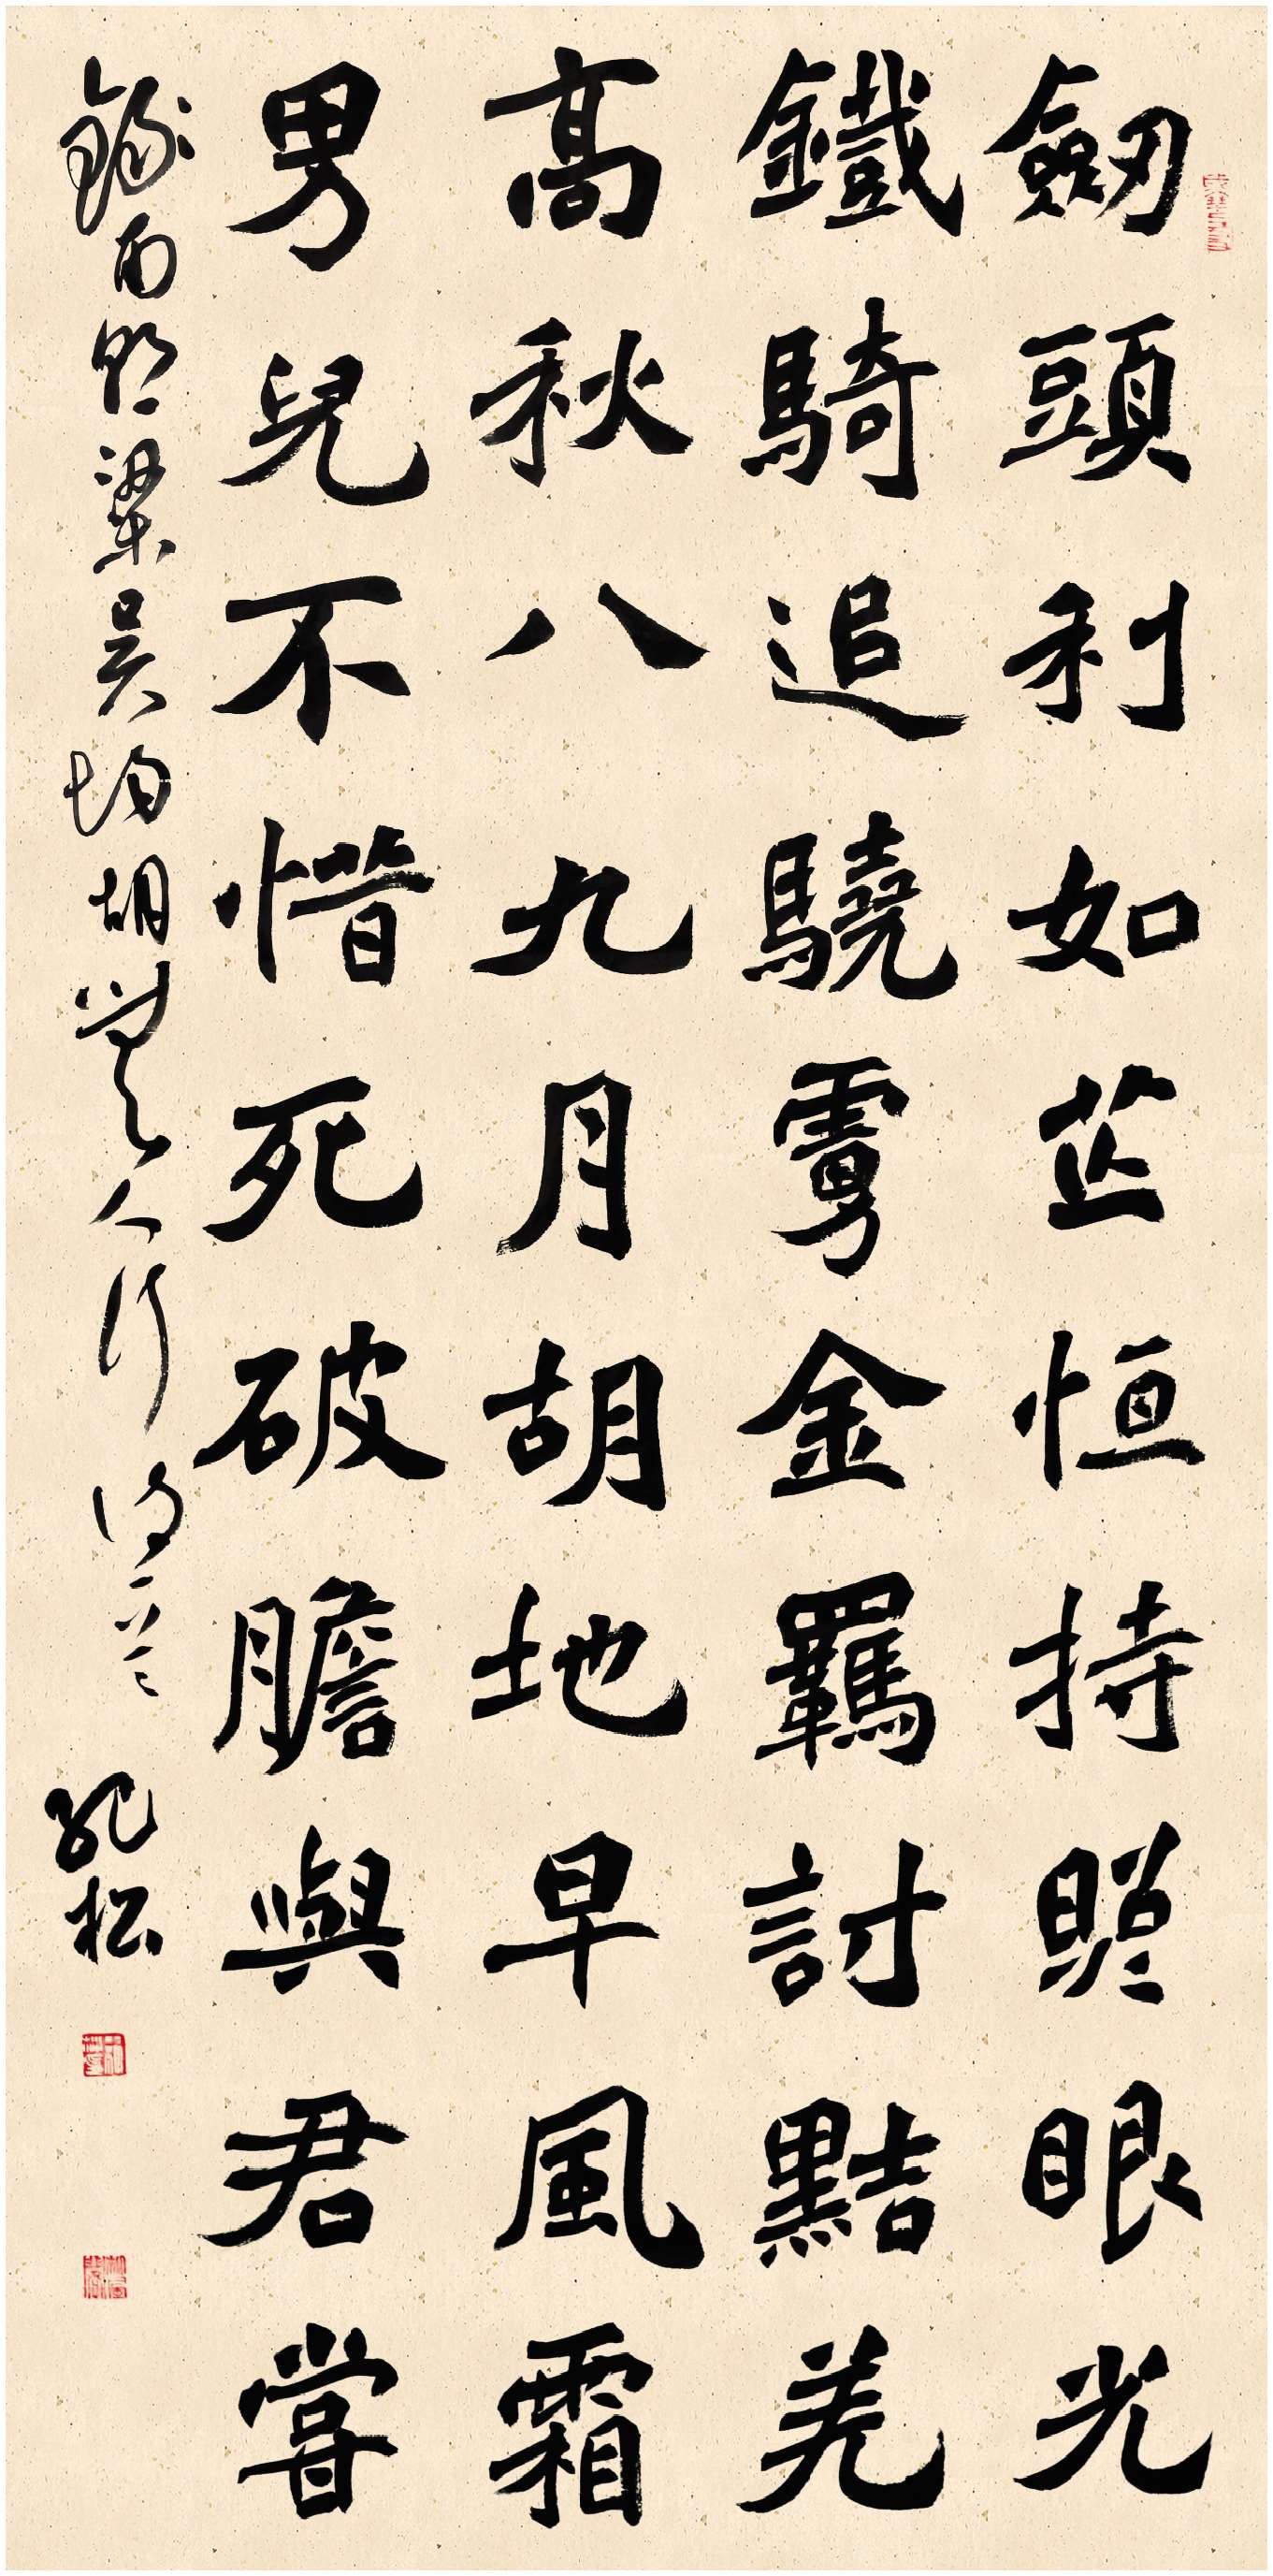 劒頭利如芒恒持照眼光
鐵騎追驍虜金羈討黠羌
高秋八九月胡地早風霜
男兒不惜死破膽與君嘗
錄南朝梁吳均胡無人行 詩一首 紀松